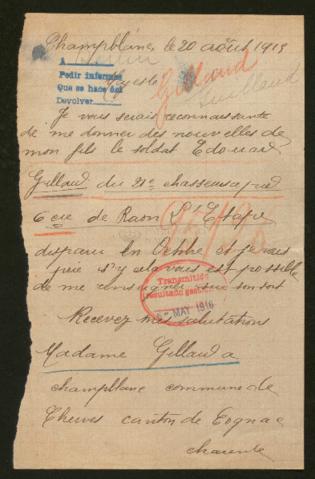 Champblanc le 20 août 1915
A
Pedir informes
Que se hace así
Devolver
Gillaud
Guillaud
Je vous serais reconnaissante
de me donner des nouvelles de
mon fils le soldat Edouard
Gillaud du 21e chasseurs à pied
6 cie de Raon L'Etape
disparu en Octbre et je vous
prie s'y cela vous est possible
de me renseigner sur son sort
Transmitido
resultado gestion
MAY 1916
Recevez mes salutations
Madame Gillaud
Champblanc commune de
Cherves canton de Cognac
charente